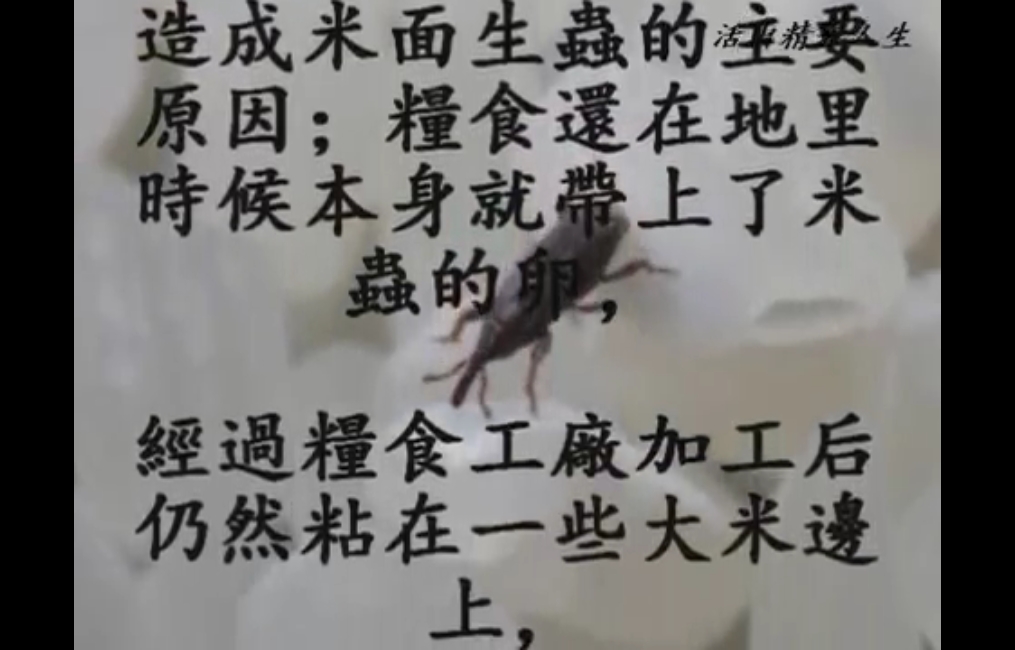 造成米面生蟲的主要
原因；糧食還在地里
時候本身就帶上了米
蟲的卵，
經過糧食工廠加工后
仍然粘在一些大米邊
上，